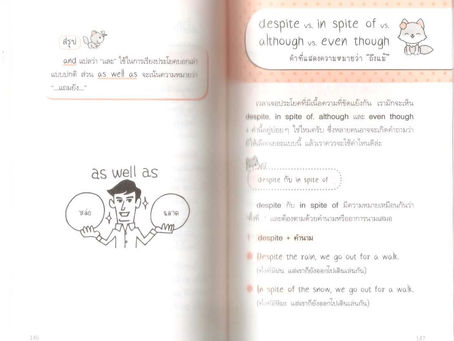 สรุป
and แปลว่า "และ" ใช้ในการเรียงประโยคบอกเล่า
แบบปกติ ส่วน as well as จะเน้นความหมายว่า
"...แถมยัง..."
as well as
หล่อ
ฉลาด
146
despite vs. in spite of vs.
although vs. even though
คำที่แสดงความหมายว่า "ถึงแม้"
เวลาเจอประโยคที่มีเนื้อความที่ขัดแย้งกัน เรามักจะเห็น
despite, in spite of, although และ even though
4 คำนี้อยู่บ่อยๆ ใช่ไหมครับ ซึ่งหลายคนอาจจะเกิดคำถามว่า
มีให้เลือกเยอะแบบนี้ แล้วเราควรจะใช้คำไหนดีล่ะ
despite กับ in spite of
despite กับ in spite of มีความหมายเหมือนกันว่า
และต้องตามด้วยคำนามหรืออาการนามเสมอ
1 despite + คำนาม
Despite the rain, we go out for a walk.
แต่เราก็ยังออกไปเดินเล่นกัน)
In spite of the snow, we go out for a walk.
แต่เราก็ยังออกไปเดินเล่นกัน)
147